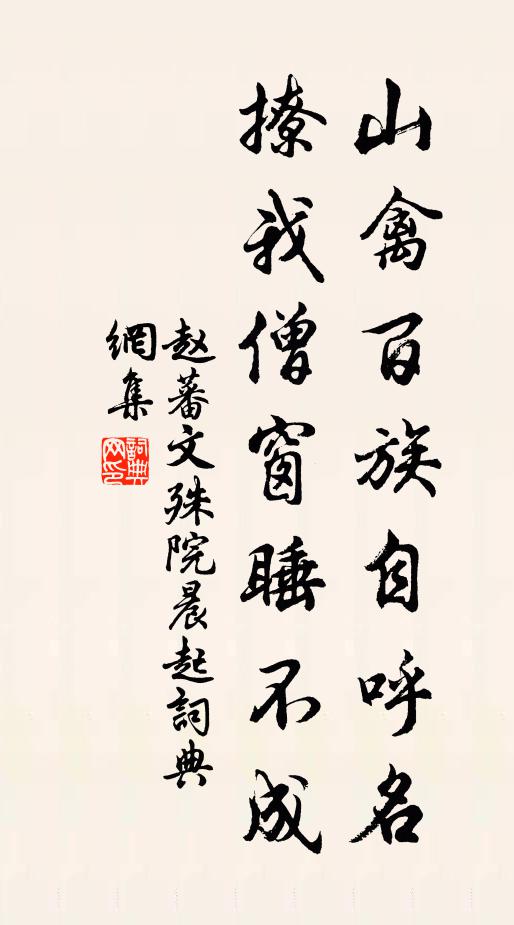 山禽百族自呼名
撩我僧窗睡不成
赵蕃文殊院晨起詞典
網集
詞典
网印